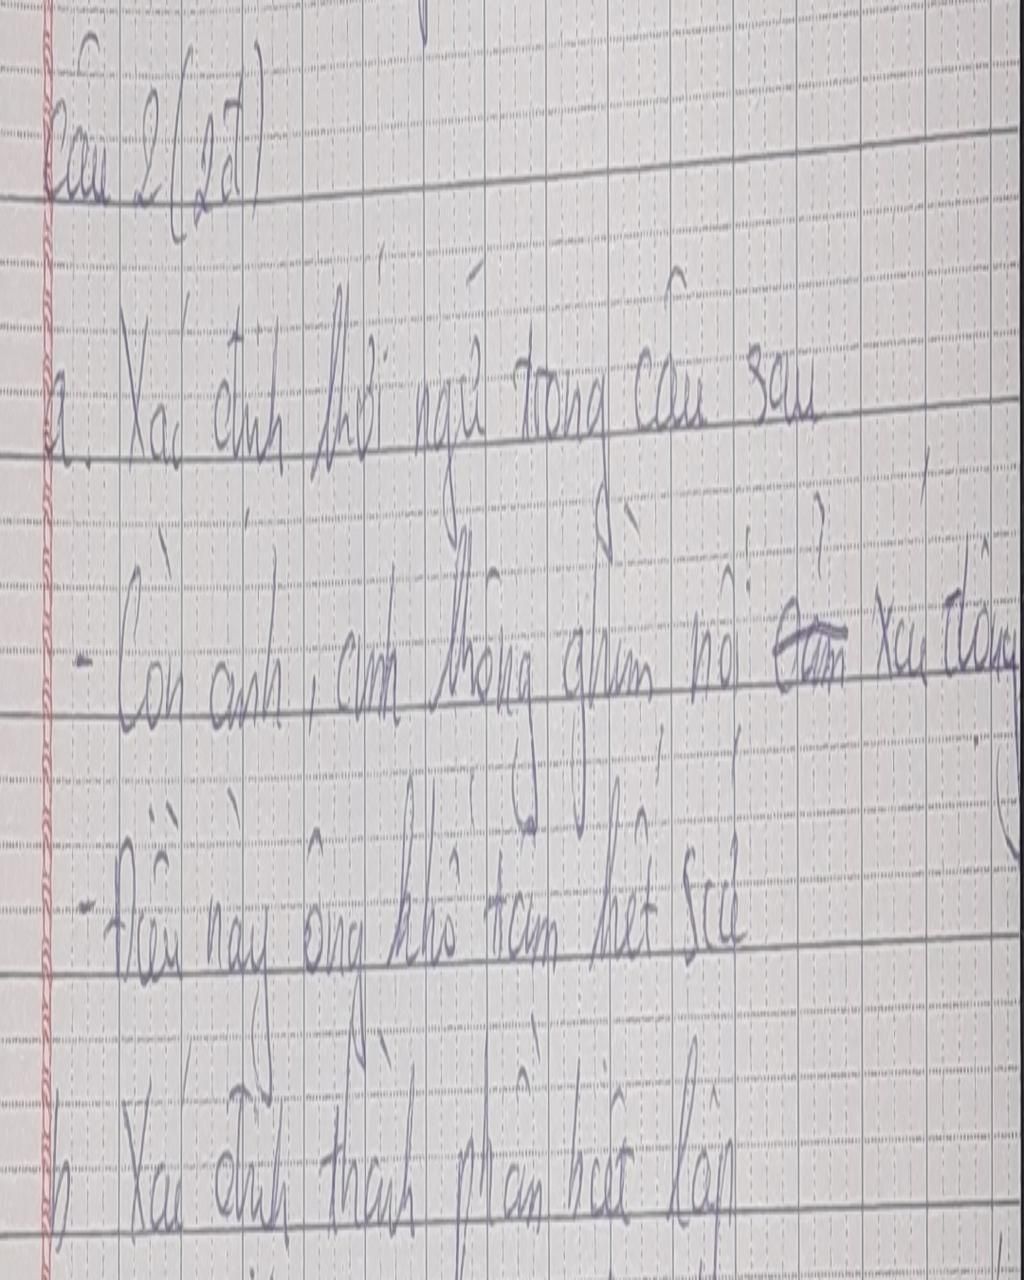 Câu 2 (2đ)
a. Xác định khởi ngữ trong câu sau
- Còn anh, anh không ghìm nổi xúc động
- Điều này ông khổ tâm hết sức
b Xác định thành phần biệt lập